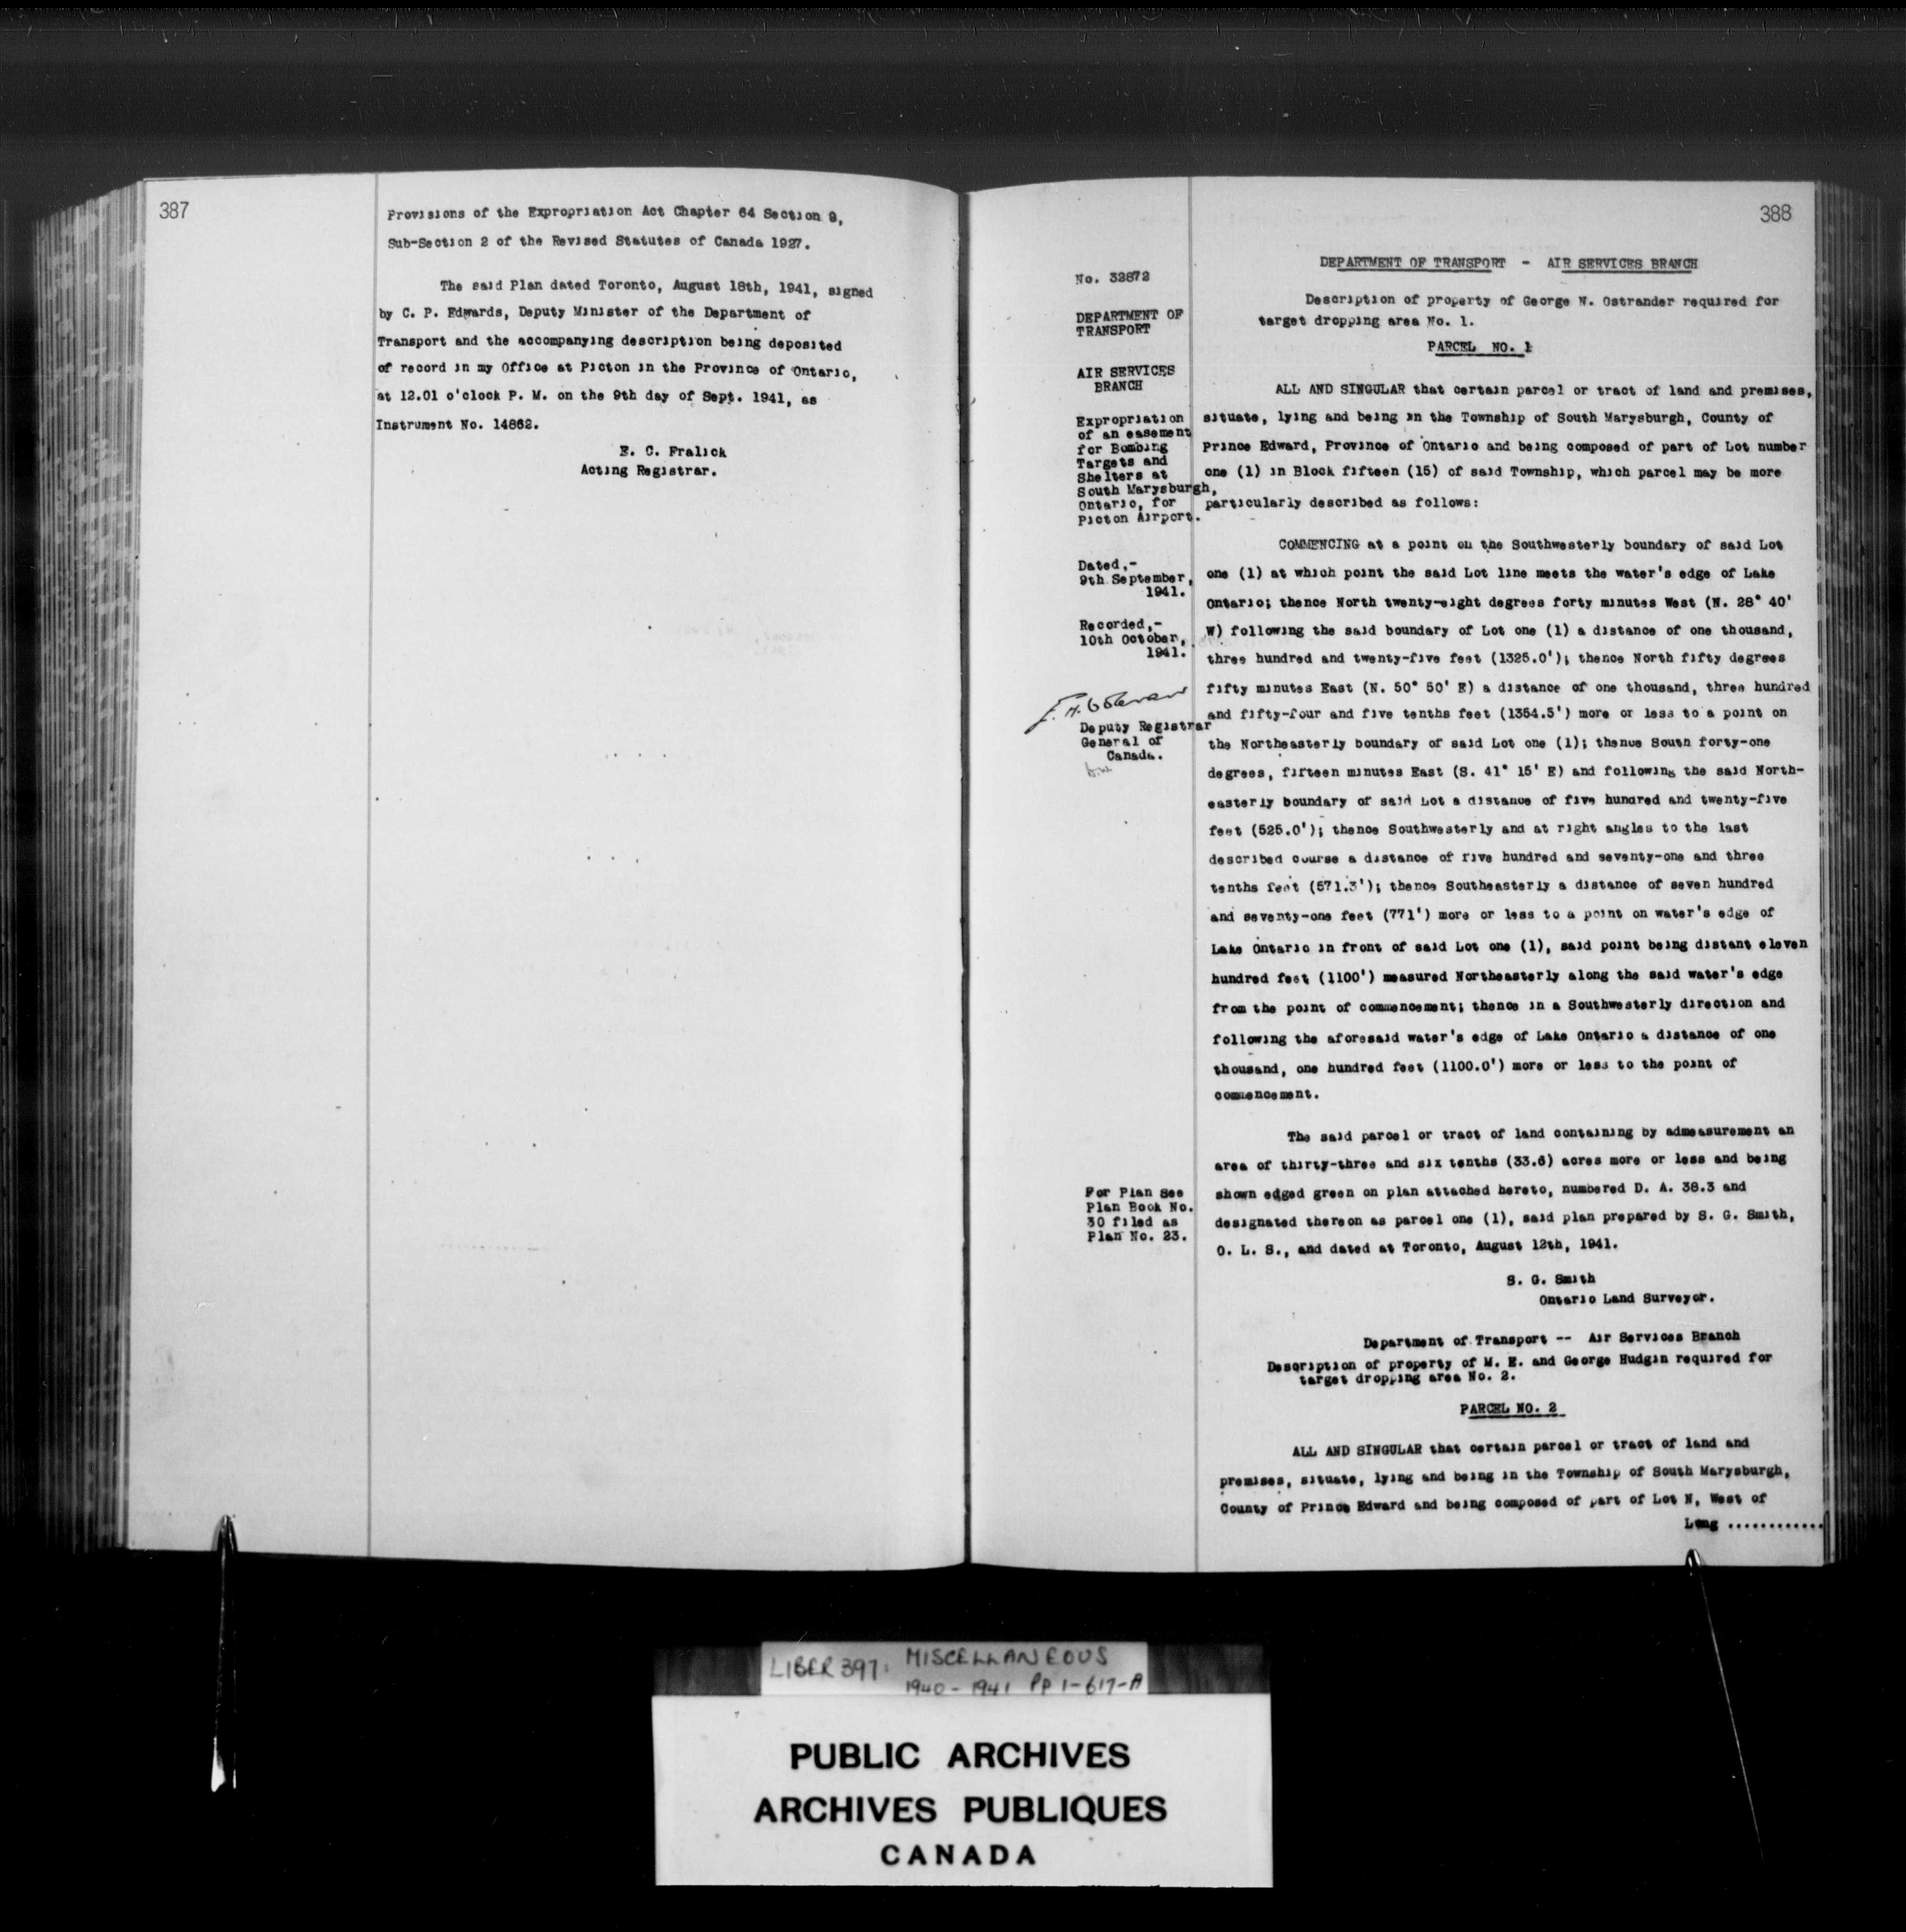 387
Provisions of the Expropriation Act Chapter 64 Section 9,
Sub-Section 2 of the Revised Statutes of Canada 1927.
The said Plan dated Toronto, August 18th, 1941, signed
by C. P. Edwards, Deputy Minister of the Department of
Transport and the accompanying description being deposited
of record in my Office at Picton in the Province of Ontario,
at 12.01 o'clock P. M. on the 9th day of Sept. 1941, as
Instrument No. 14862.
E. C. Fralick
Acting Registrar.
388
No. 32872
DEPARTMENT OF
TRANSPORT
AIR SERVICES
BRANCH
Expropriation
of an easement
for Bombing
Targets and
Shelters at
South Marysburgh,
Ontario, for
Picton Airport.
Dated,-
9th September,
1941.
Recorded,-
10th October,
1941.
Deputy Registrar
General of
Canada.
For Plan See
Plan Book No.
30 filed as
Plan No. 23.
DEPARTMENT OF TRANSPORT - AIR SERVICES BRANCH
Description of property of George N. Ostrander required for
target dropping area No. 1.
PARCEL NO. 1
ALL AND SINGULAR that certain parcel or tract of land and premises,
situate, lying and being in the Township of South Marysburgh, County of
Prince Edward, Province of Ontario and being composed of part of Lot number
one (1) in Block fifteen (15) of said Township, which parcel may be more
particularly described as follows:
COMMENCING at a point on the Southwesterly boundary of said Lot
one (1) at which point the said Lot line meets the water's edge of Lake
Ontario; thence North twenty-eight degrees forty minutes West (N. 28° 40'
W) following the said boundary of Lot one (1) a distance of one thousand,
three hundred and twenty-five feet (1325.0'); thence North fifty degrees
fifty minutes East (N. 50° 50' E) a distance of one thousand, three hundred
and fifty-four and five tenths feet (1354.5') more or less to a point on
the Northeasterly boundary of said Lot one (1); thence South forty-one
degrees, fifteen minutes East (S. 41° 15' E) and following the said North-
easterly boundary of said Lot a distance of five hundred and twenty-five
feet (525.0'); thence Southwesterly and at right angles to the last
described course a distance of five hundred and seventy-one and three
tenths feet (571.3'); thence Southeasterly a distance of seven hundred
and seventy-one feet (771') more or less to a point on water's edge of
Lake Ontario in front of said Lot one (1), said point being distant eleven
hundred feet (1100') measured Northeasterly along the said water's edge
from the point of commencement; thence in a Southwesterly direction and
following the aforesaid water's edge of Lake Ontario a distance of one
thousand, one hundred feet (1100.0') more or less to the point of
commencement.
The said parcel or tract of land containing by admeasurement an
area of thirty-three and six tenths (33.6) acres more or less and being
shown edged green on plan attached hereto, numbered D. A. 38.3 and
designated thereon as parcel one (1), said plan prepared by S. G. Smith,
O. L. S., and dated at Toronto, August 12th, 1941.
S. G. Smith
Ontario Land Surveyor.
Department of Transport -- Air Services Branch
Description of property of M. E. and George Hudgin required for
target dropping area No. 2.
PARCEL NO. 2
ALL AND SINGULAR that certain parcel or tract of land and
premises, situate, lying and being in the Township of South Marysburgh,
County of Prince Edward and being composed of part of Lot N, West of
Long ............
LIBER 397: MISCELLANEOUS
1940-1941 PP 1-617-A
PUBLIC ARCHIVES
ARCHIVES PUBLIQUES
CANADA